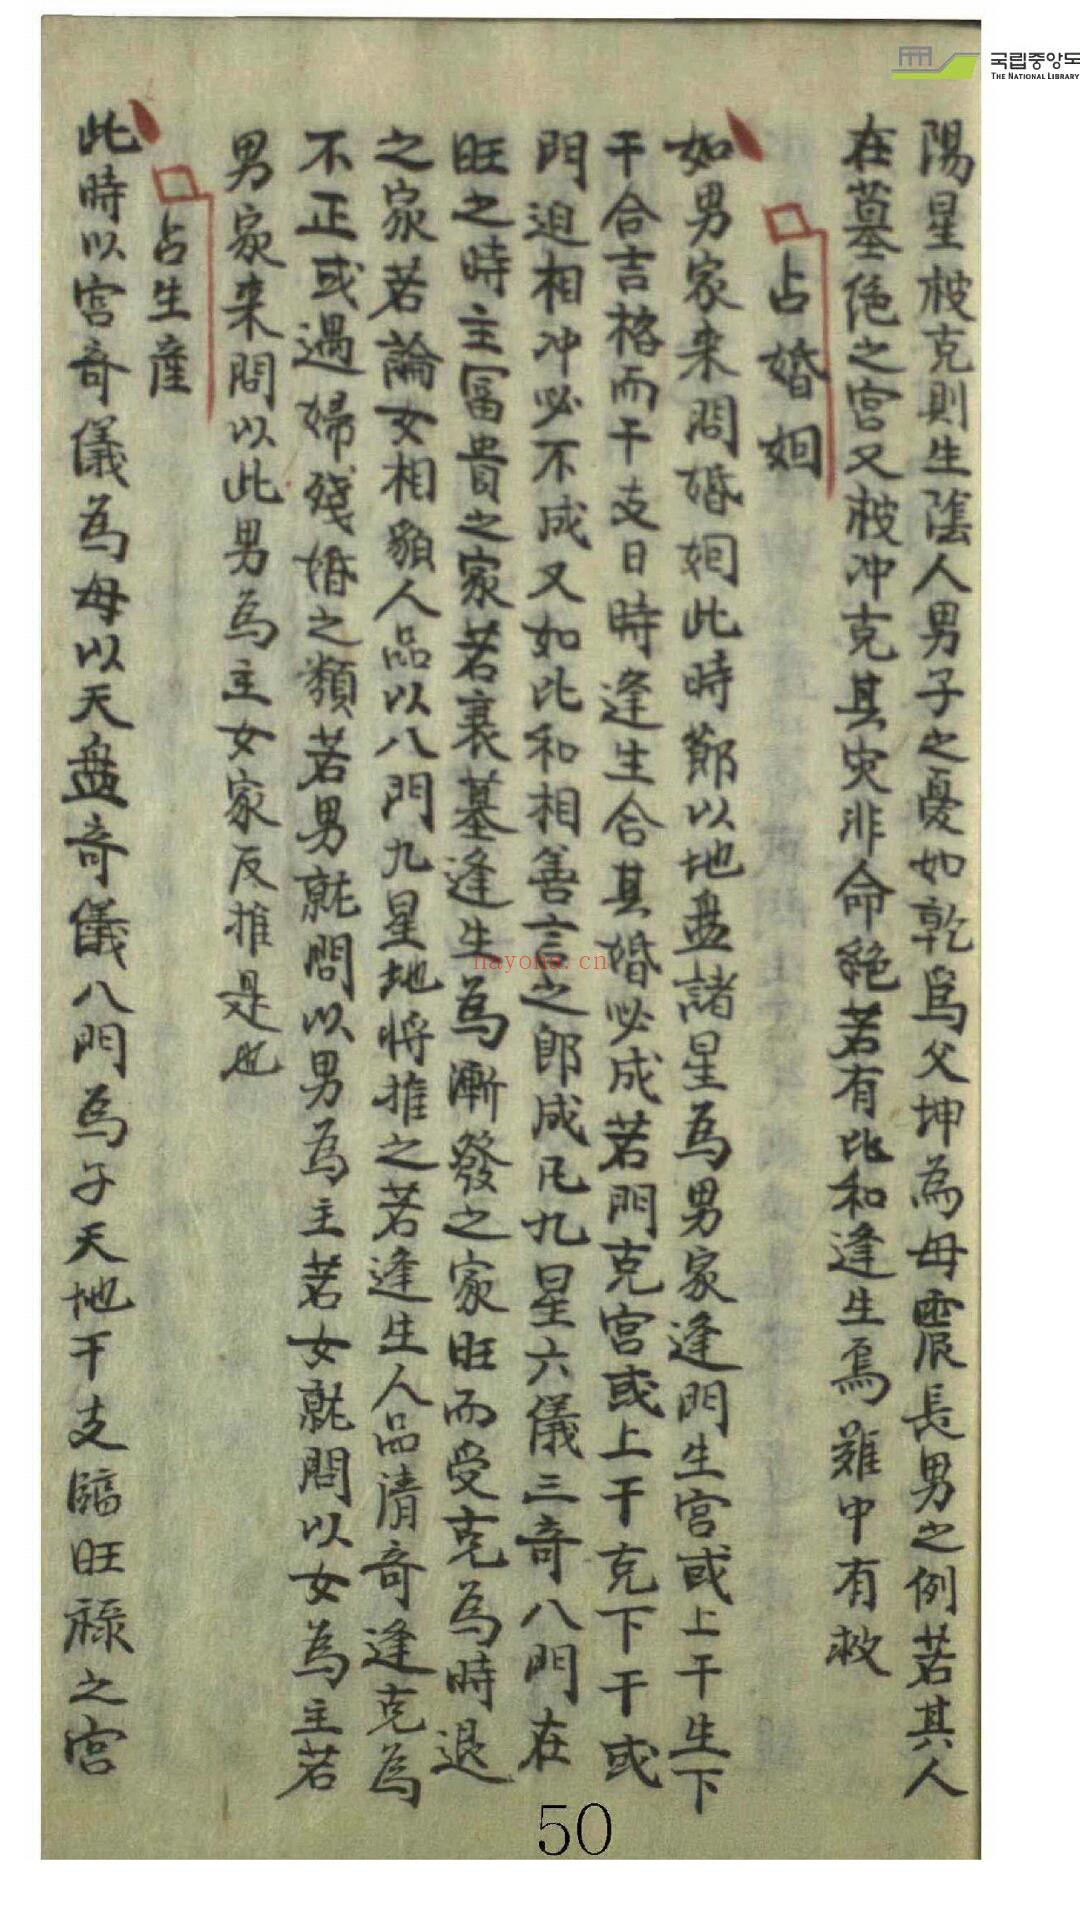 국립중앙도
THE NATIONAL LIBRARY
陽星被克則生陰人男子之憂如乾爲父坤為母震長男之例若其人
在墓绝之宮又被冲克其灾非命絕若有比和逢生焉難中有救
占婚姻
如男家来問婚姻此時節以地盘諸星為男家逢門生宮或上干生下
干合吉格而干支日時逢生合其婚必成若門克宮或上干克下干或
門迫相冲必不成又如比和相善言之郎成凡九星六儀三奇八門在
旺之時主冨貴之家若衰墓逢生為漸發之家旺而受克為時退
之家若論女相貌人品以八門九星地将推之若逢生人品清奇逢克為
不正或過婦殘婚之類若男就問以男為主若女就問以女為主若
男家来問以此男為主女家反推是也
占生產
此時以宮奇儀為母以天盘奇儀八門為子天地干支臨旺祿之宮
nayona.cn
50